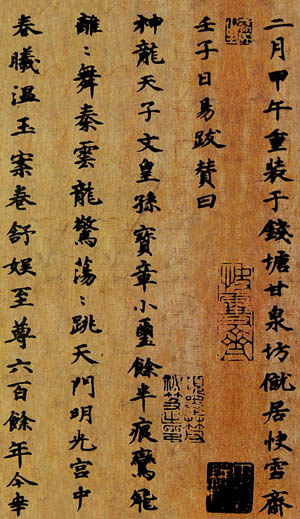 二月甲午重裝于錢塘甘泉坊僦居快雪齋
壬子日易跋贊曰
神龍天子文皇孫寶章小璽餘半痕鸞飛
離〻舞秦雲龍驚蕩〻跳天門明光宮中
春曦溫玉案卷舒娛至尊六百餘年今幸
快雪齋